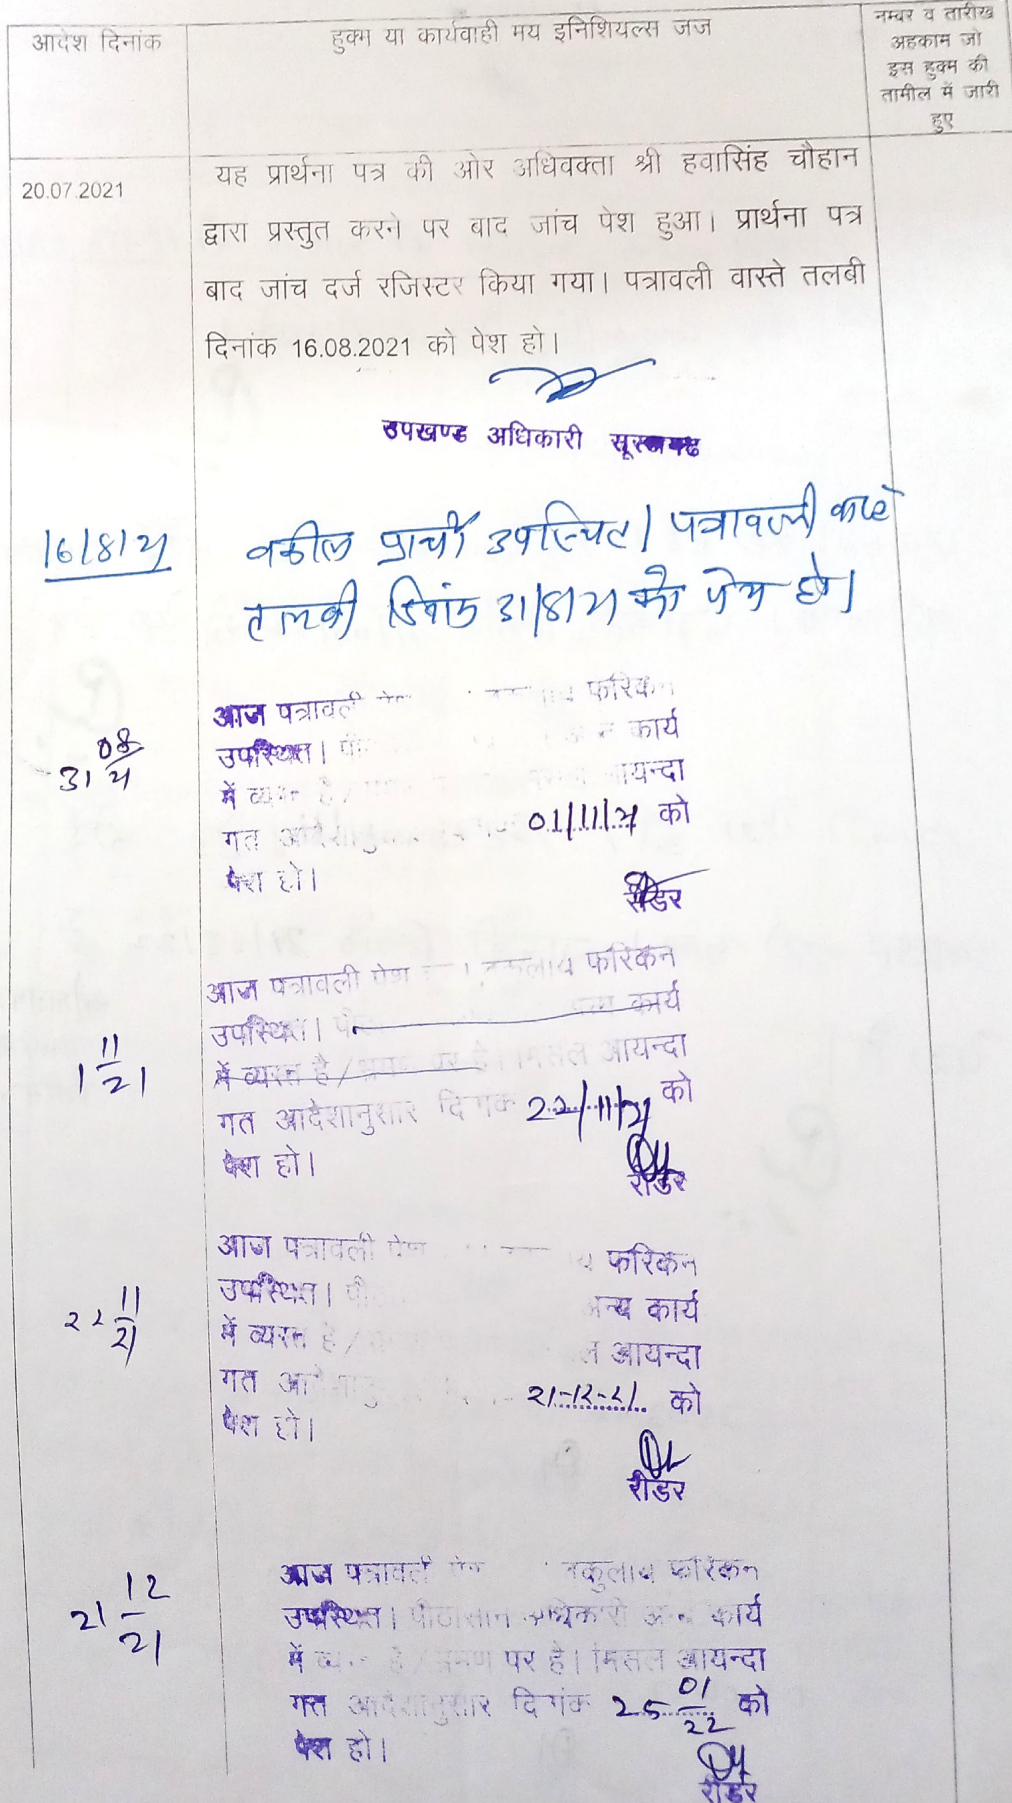 आदेश दिनांक
हुक्म या कार्यवाही मय इनिशियल्स जज
नम्बर व तारीख
अहकाम जो
इस हुक्म की
तामील में जारी
हुए
20.07.2021
यह प्रार्थना पत्र की ओर अधिवक्ता श्री हवासिंह चौहान
द्वारा प्रस्तुत करने पर बाद जांच पेश हुआ। प्रार्थना पत्र
बाद जांच दर्ज रजिस्टर किया गया। पत्रावली वास्ते तलबी
दिनांक 16.08.2021 को पेश हो।
उपखण्ड अधिकारी
16/8/21
वकील प्रार्थी उपस्थित। पत्रावली वास्ते
तलबी दिनांक 31/8/21 को पेश हो।
31 08/21
आज पत्रावली फरिकन
उपस्थित। कार्य
में व्यस्त है / आयन्दा
गत आदेशानुसार 01/11/21 को
पेश हो।
रीडर
1 11/21
आज पत्रावली पेश वकुलाय फरिकन
उपस्थित। कार्य
में व्यस्त है / भ्रमण पर है। मिसल आयन्दा
गत आदेशानुसार दिनांक 22/11/21 को
पेश हो।
रीडर
22 11/21
आज पत्रावली पेश फरिकन
उपस्थित। अन्य कार्य
में व्यस्त है / आयन्दा
गत 21-12-21 को
पेश हो।
रीडर
21 12/21
आज पत्रावली वकुलाय फरिकन
उपस्थित। पीठासीन अधिकारी अन्य कार्य
में है / भ्रमण पर है। मिसल आयन्दा
गत आदेशानुसार दिनांक 25 01/22 को
पेश हो।
रीडर